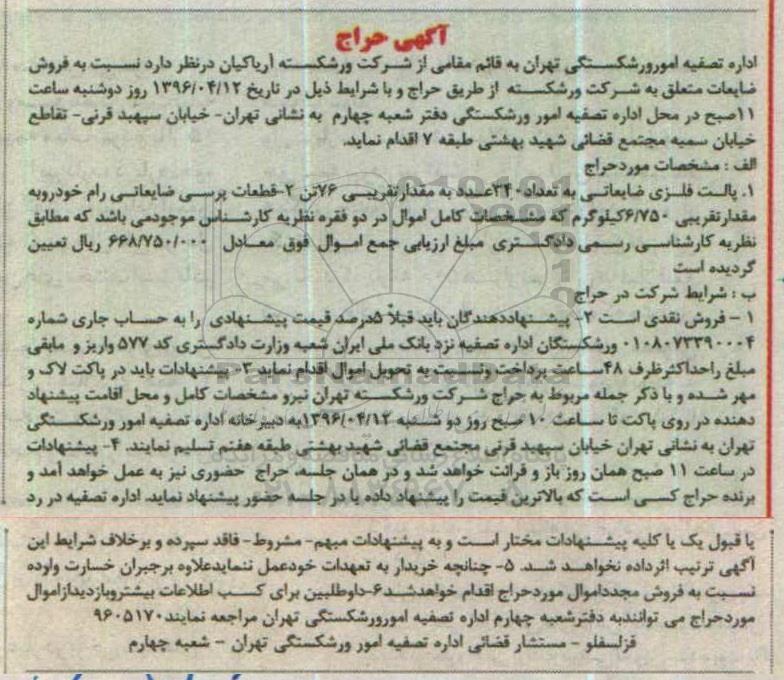 آگهی حراج
اداره تصفیه امورورشکستگی تهران به قائم مقامی از شرکت ورشکسته آریاکیان درنظر دارد نسبت به فروش
ضایعات متعلق به شرکت ورشکسته از طریق حراج و با شرایط ذیل در تاریخ ۱۳۹۶/۰۴/۱۲ روز دوشنبه ساعت
۱۱صبح در محل اداره تصفیه امور ورشکستگی دفتر شعبه چهارم به نشانی تهران- خیابان سپهبد قرنی- تقاطع
خیابان سمیه مجتمع قضائی شهید بهشتی طبقه ۷ اقدام نماید.
الف : مشخصات موردحراج
۱. پالت فلزی ضایعاتی به تعداد۳۴۰عدد به مقدارتقریبی ۷۶تن ۲-قطعات پرسی ضایعاتی رام خودروبه
مقدارتقریبی ۶/۷۵۰کیلوگرم که مشخصات کامل اموال در دو فقره نظریه کارشناس موجودمی باشد که مطابق
نظریه کارشناسی رسمی دادگستری مبلغ ارزیابی جمع اموال فوق معادل ۶۶۸/۷۵۰/۰۰۰ ریال تعیین
گردیده است
ب : شرایط شرکت در حراج
۱ – فروش نقدی است ۲- پیشنهاددهندگان باید قبلاً ۵درصد قیمت پیشنهادی را به حساب جاری شماره
۰۱۰۸۰۷۳۳۹۰۰۰۴ ورشکستگان اداره تصفیه نزد بانک ملی ایران شعبه وزارت دادگستری کد ۵۷۷ واریز و مابقی
مبلغ راحداکثرظرف ۴۸ساعت پرداخت ونسبت به تحویل اموال اقدام نماید ۳- پیشنهادات باید در پاکت لاک و
مهر شده و با ذکر جمله مربوط به حراج شرکت ورشکسته تهران نیرو مشخصات کامل و محل اقامت پیشنهاد
دهنده در روی پاکت تا ساعت ۱۰ صبح روز دو شنبه ۱۳۹۶/۰۴/۱۲به دبیرخانه اداره تصفیه امور ورشکستگی
تهران به نشانی تهران خیابان سپهبد قرنی مجتمع قضائی شهید بهشتی طبقه هفتم تسلیم نمایند. ۴- پیشنهادات
در ساعت ۱۱ صبح همان روز باز و قرائت خواهد شد و در همان جلسه، حراج حضوری نیز به عمل خواهد آمد و
برنده حراج کسی است که بالاترین قیمت را پیشنهاد داده یا در جلسه حضور پیشنهاد نماید. اداره تصفیه در رد
یا قبول یک یا کلیه پیشنهادات مختار است و به پیشنهادات مبهم- مشروط- فاقد سپرده و برخلاف شرایط این
آگهی ترتیب اثرداده نخواهد شد. ۵- چنانچه خریدار به تعهدات خودعمل ننمایدعلاوه برجبران خسارت وارده
نسبت به فروش مجدداموال موردحراج اقدام خواهدشد۶-داوطلبین برای کسب اطلاعات بیشتروبازدیدازاموال
موردحراج می توانندبه دفترشعبه چهارم اداره تصفیه امورورشکستگی تهران مراجعه نمایند۹۶۰۵۱۷۰
قزلسفلو - مستشار قضائی اداره تصفیه امور ورشکستگی تهران – شعبه چهارم
ParsNamadData